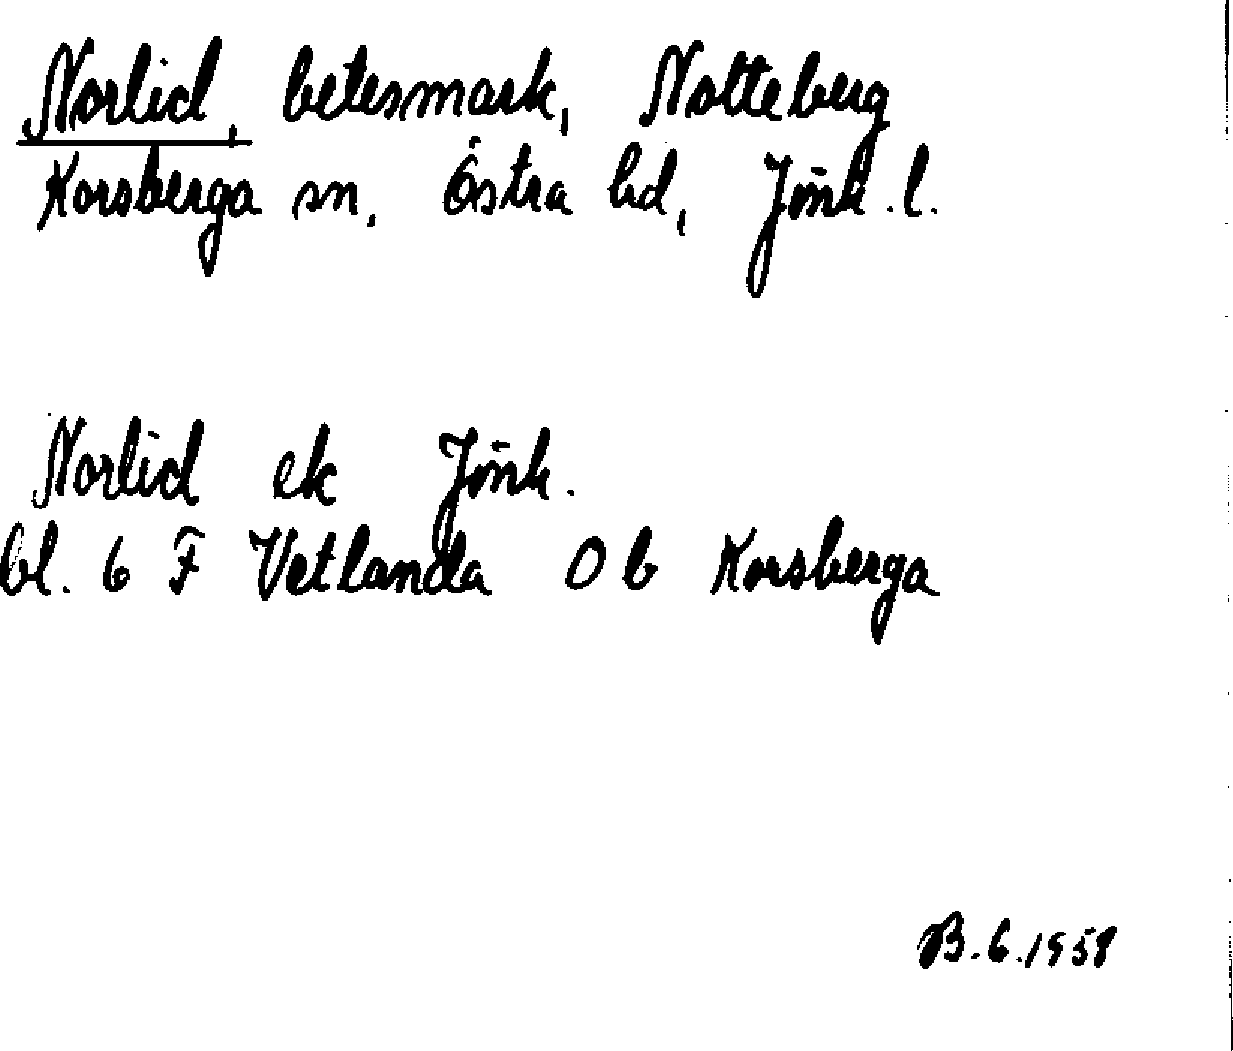 Norlid, betesmark, Notteberg
Korsberga sn, Östra hd, Jönk.l.
Norlid ek Jönk.
bl. 6 F Vetlanda 0 b Korsberga
B.G.1958